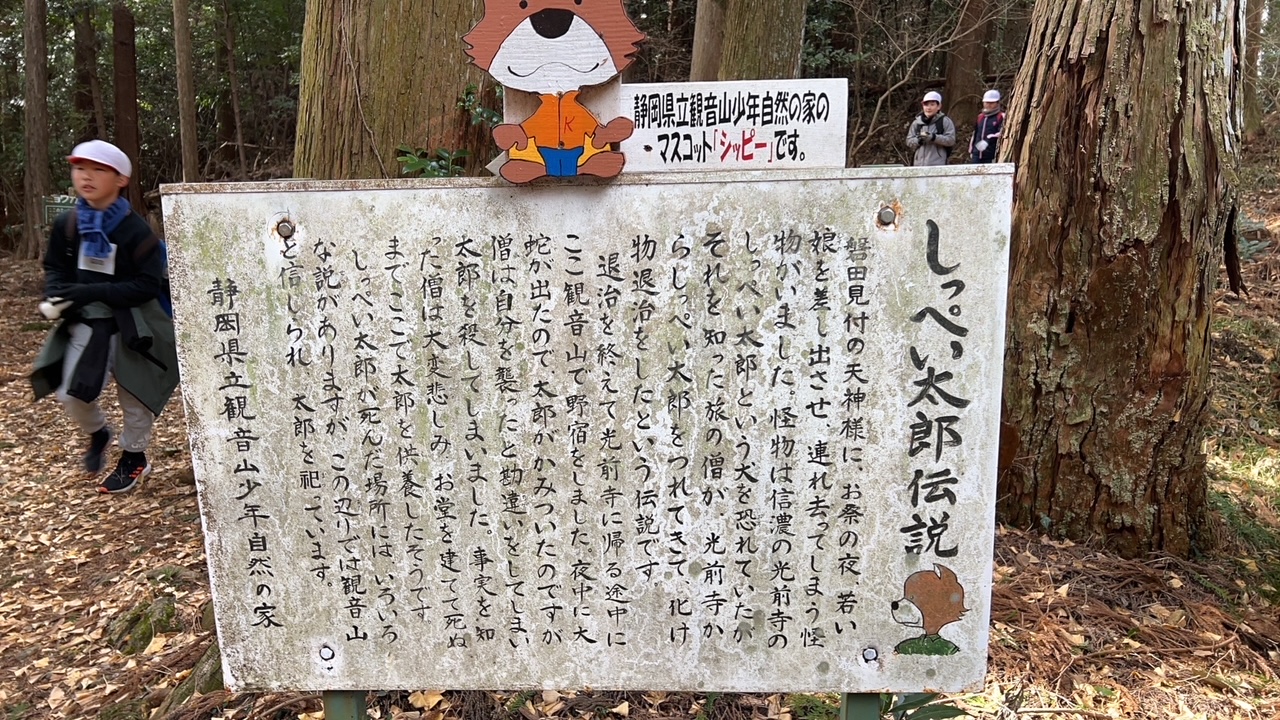 静岡県立観音山少年自然の家の
マスコット「シッピー」です。
しっぺい太郎伝説
磐田見付の天神様に、お祭の夜、若い
娘を差し出させ、連れ去ってしまう怪
物がいました。怪物は信濃の光前寺の
しっぺい太郎という犬を恐れていたが
それを知った旅の僧が、光前寺か
らしっぺい太郎をつれてきて、化け
物退治をしたという伝説です
退治を終えて光前寺に帰る途中に
ここ観音山で野宿をしました。夜中に大
蛇が出たので、太郎がかみついたのですが
僧は自分を襲ったと勘違いをしてしまい
太郎を殺してしまいました。事実を知
った僧は大変悲しみ、お堂を建てて死ぬ
までここで太郎を供養したそうです
しっぺい太郎が死んだ場所には、いろいろ
な説がありますが、この辺りでは観音山
と信じられ、太郎を祀っています。
静岡県立観音山少年自然の家
K